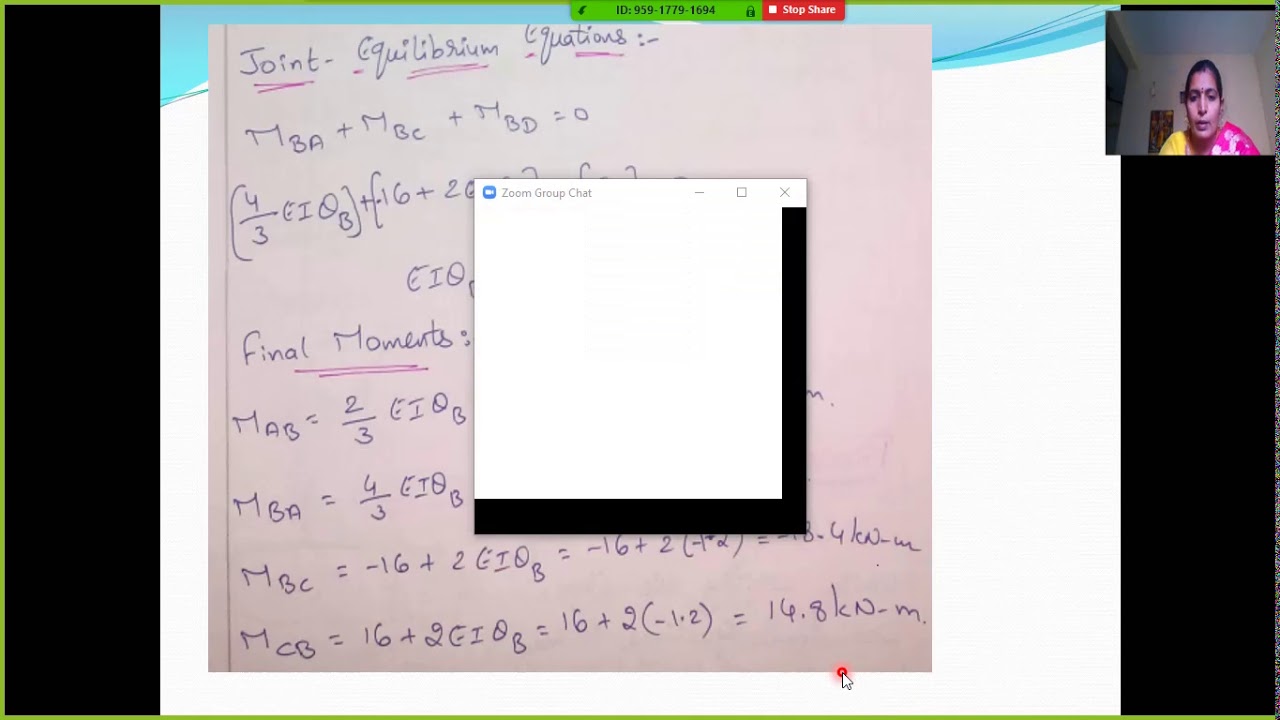 ID: 959-1779-1694 Stop Share
Joint- Equilibrium Equations:-
M_BA + M_BC + M_BD = 0
(4/3 EIθ_B] + [-16 + 2E
EIθ
Zoom Group Chat
Final Moments:
M_AB = 2/3 EIθ_B m.
M_BA = 4/3 EIθ_B
M_BC = -16 + 2EIθ_B = -16 + 2(-1.2) = -18.4 kN-m
M_CB = 16 + 2EIθ_B = 16 + 2(-1.2) = 14.8 kN-m.